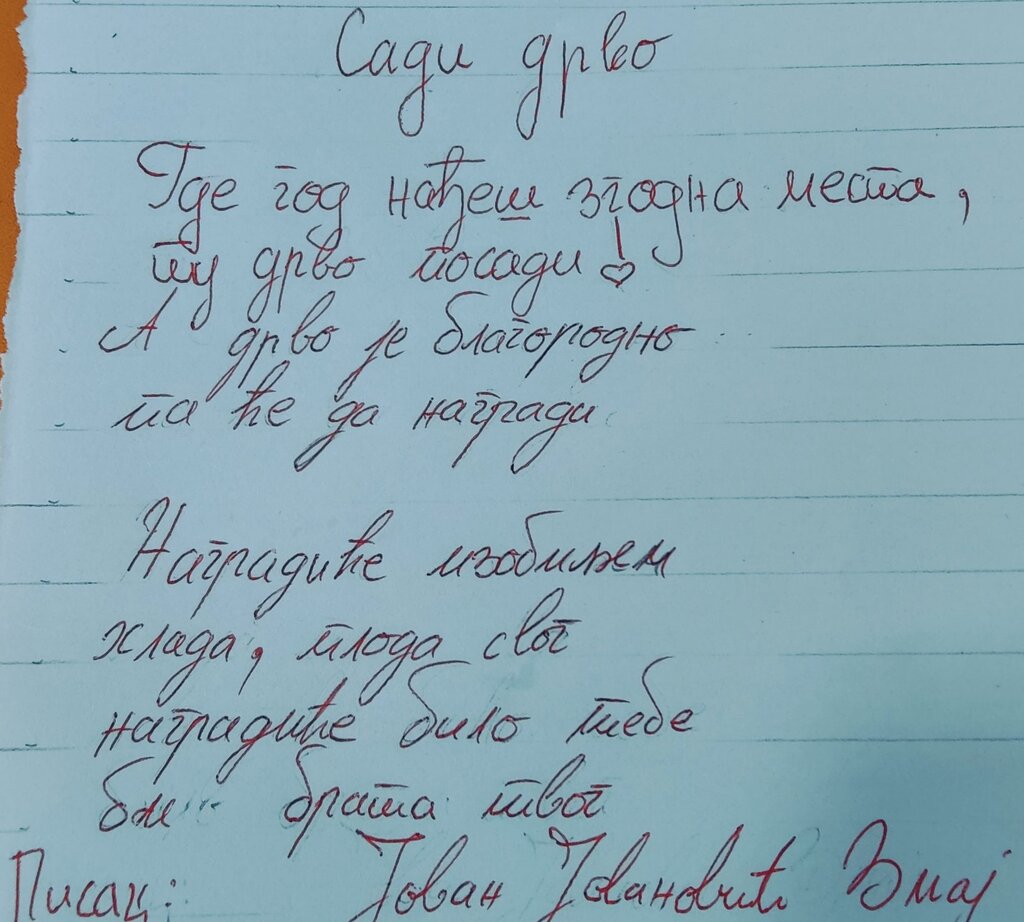 Сади дрво
Где год нађеш згодна места,
ту дрво посади!
А дрво је благородно
па ће да награди
Наградиће изобиљем
хлада, плода свог
наградиће било тебе
бил брата твог
Писац: Јован Јовановић Змај